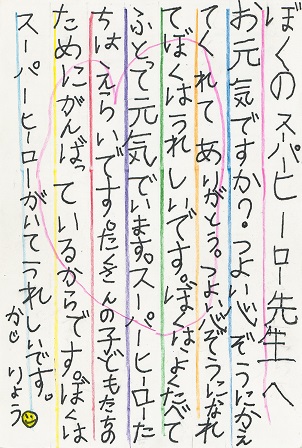 ぼくのスパヒーロー先生へ
お元気ですか?つよい心ぞうにかえ
てくれてありがとう。つよい心ぞうになれ
てぼくはうれしいです。ぼくはよくたべて
ふとって元気でいます。スーパーヒーローた
ちはえらいです。たくさんの子どもたちの
ためにがんばっているからです。ぼくは
スーパーヒーローがいてうれしいです。
かじりょう